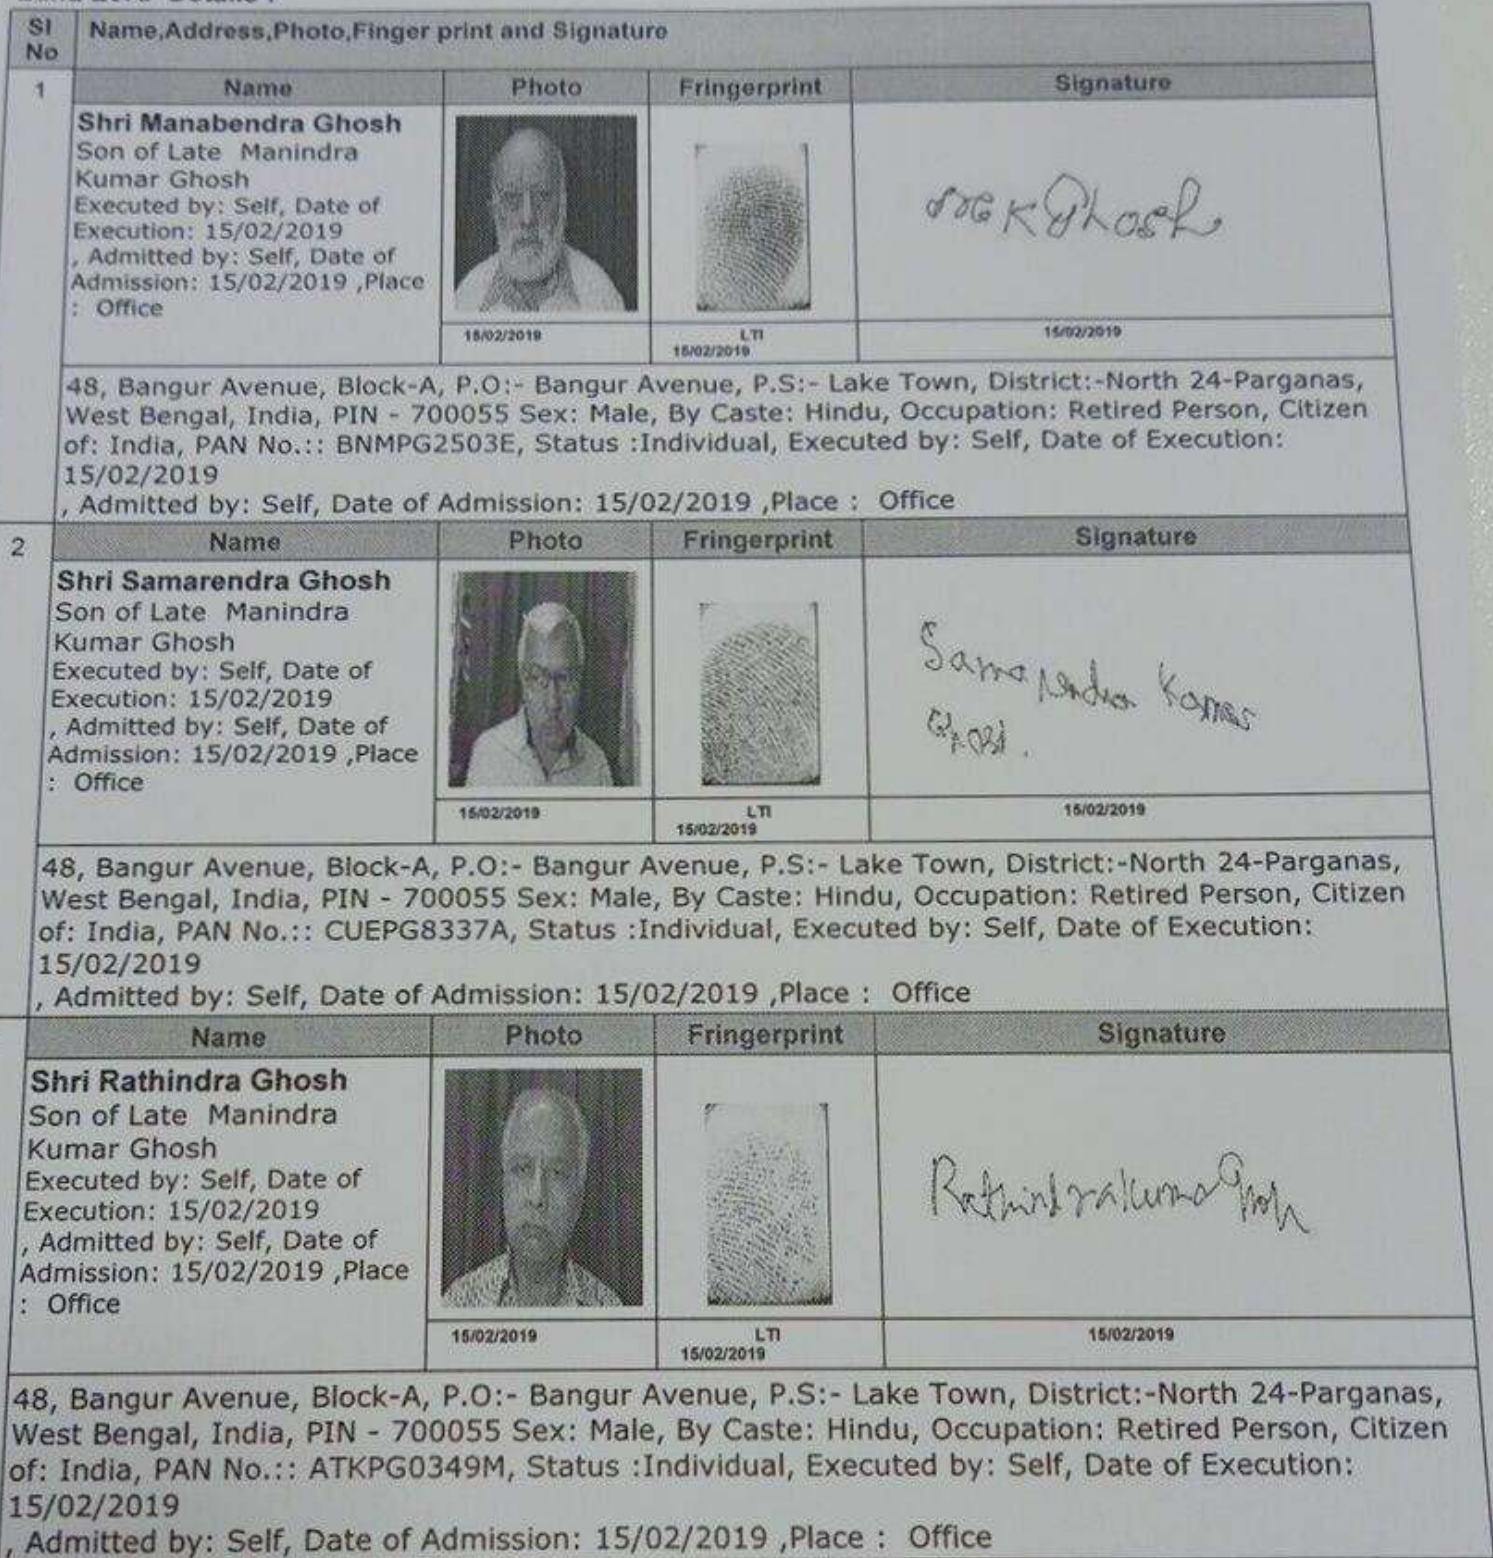 Sl No
Name,Address,Photo,Finger print and Signature
1
Name Photo Fringerprint Signature
Shri Manabendra Ghosh
Son of Late Manindra
Kumar Ghosh
Executed by: Self, Date of
Execution: 15/02/2019
, Admitted by: Self, Date of
Admission: 15/02/2019 ,Place
: Office
K Ghosh
15/02/2019
LTI
15/02/2019
15/02/2019
48, Bangur Avenue, Block-A, P.O:- Bangur Avenue, P.S:- Lake Town, District:-North 24-Parganas,
West Bengal, India, PIN - 700055 Sex: Male, By Caste: Hindu, Occupation: Retired Person, Citizen
of: India, PAN No.:: BNMPG2503E, Status :Individual, Executed by: Self, Date of Execution:
15/02/2019
, Admitted by: Self, Date of Admission: 15/02/2019 ,Place : Office
2
Name Photo Fringerprint Signature
Shri Samarendra Ghosh
Son of Late Manindra
Kumar Ghosh
Executed by: Self, Date of
Execution: 15/02/2019
, Admitted by: Self, Date of
Admission: 15/02/2019 ,Place
: Office
Samarendra Kumar
Ghosh.
15/02/2019
LTI
15/02/2019
15/02/2019
48, Bangur Avenue, Block-A, P.O:- Bangur Avenue, P.S:- Lake Town, District:-North 24-Parganas,
West Bengal, India, PIN - 700055 Sex: Male, By Caste: Hindu, Occupation: Retired Person, Citizen
of: India, PAN No.:: CUEPG8337A, Status :Individual, Executed by: Self, Date of Execution:
15/02/2019
, Admitted by: Self, Date of Admission: 15/02/2019 ,Place : Office
Name Photo Fringerprint Signature
Shri Rathindra Ghosh
Son of Late Manindra
Kumar Ghosh
Executed by: Self, Date of
Execution: 15/02/2019
, Admitted by: Self, Date of
Admission: 15/02/2019 ,Place
: Office
Rathindra kumar Ghosh
15/02/2019
LTI
15/02/2019
15/02/2019
48, Bangur Avenue, Block-A, P.O:- Bangur Avenue, P.S:- Lake Town, District:-North 24-Parganas,
West Bengal, India, PIN - 700055 Sex: Male, By Caste: Hindu, Occupation: Retired Person, Citizen
of: India, PAN No.:: ATKPG0349M, Status :Individual, Executed by: Self, Date of Execution:
15/02/2019
, Admitted by: Self, Date of Admission: 15/02/2019 ,Place : Office